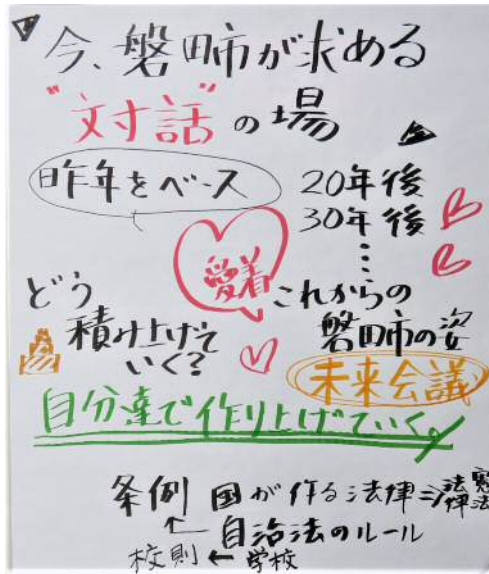 今、磐田市が求める
"対話"の場
昨年をベース
20年後
30年後
⋮
愛着
どう
積み上げて
いく?
これからの
磐田市の姿
未来会議
自分達で作り上げていく。
条例 国が作る法律⇒法律 憲法
← 自治法のルール
校則 ← 学校